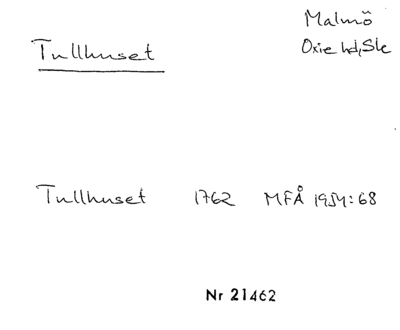 Malmö
Tullhuset
Oxie hd, Sk
Tullhuset 1762 MFÅ 1954:68
Nr 21462